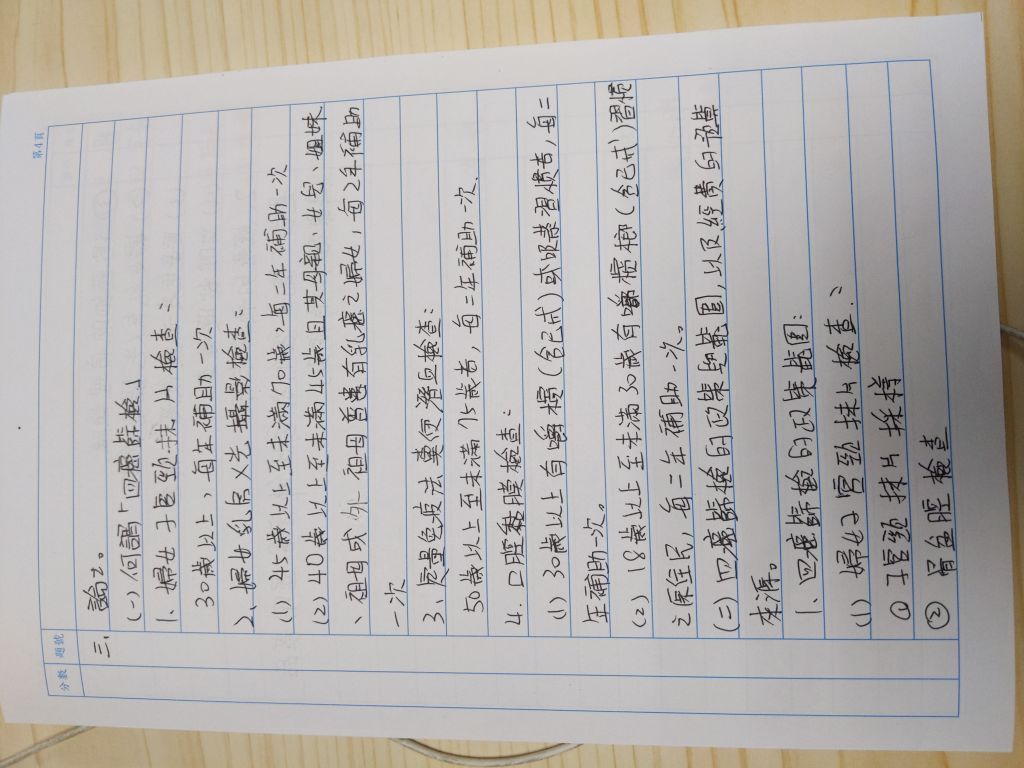 第4頁
分數 題號
三、 論之。
(一)何謂「四癌篩檢」
1、婦女子宮頸抹片檢查:
30歲以上,每年補助一次
2、婦女乳房X光攝影檢查:
(1) 45歲以上至未滿70歲,每二年補助一次
(2) 40歲以上至未滿45歲且其母親、女兒、姐妹
、祖母或外祖母曾患有乳癌之婦女,每2年補助
一次
3、定量免疫法糞便潛血檢查:
50歲以上至未滿75歲者,每二年補助一次.
4. 口腔黏膜檢查:
(1) 30歲以上有嚼檳(含已戒)或吸菸習慣者,每二
年補助一次。
(2) 18歲以上至未滿30歲有嚼檳榔(含已戒)習慣
之原住民,每二年補助一次。
(二)四癌篩檢的政策與範圍,以及經費的預算
來源。
1、四癌篩檢的政策範圍:
(1) 婦女子宮頸抹片檢查:
① 子宮頸抹片採樣
② 骨盆腔檢查